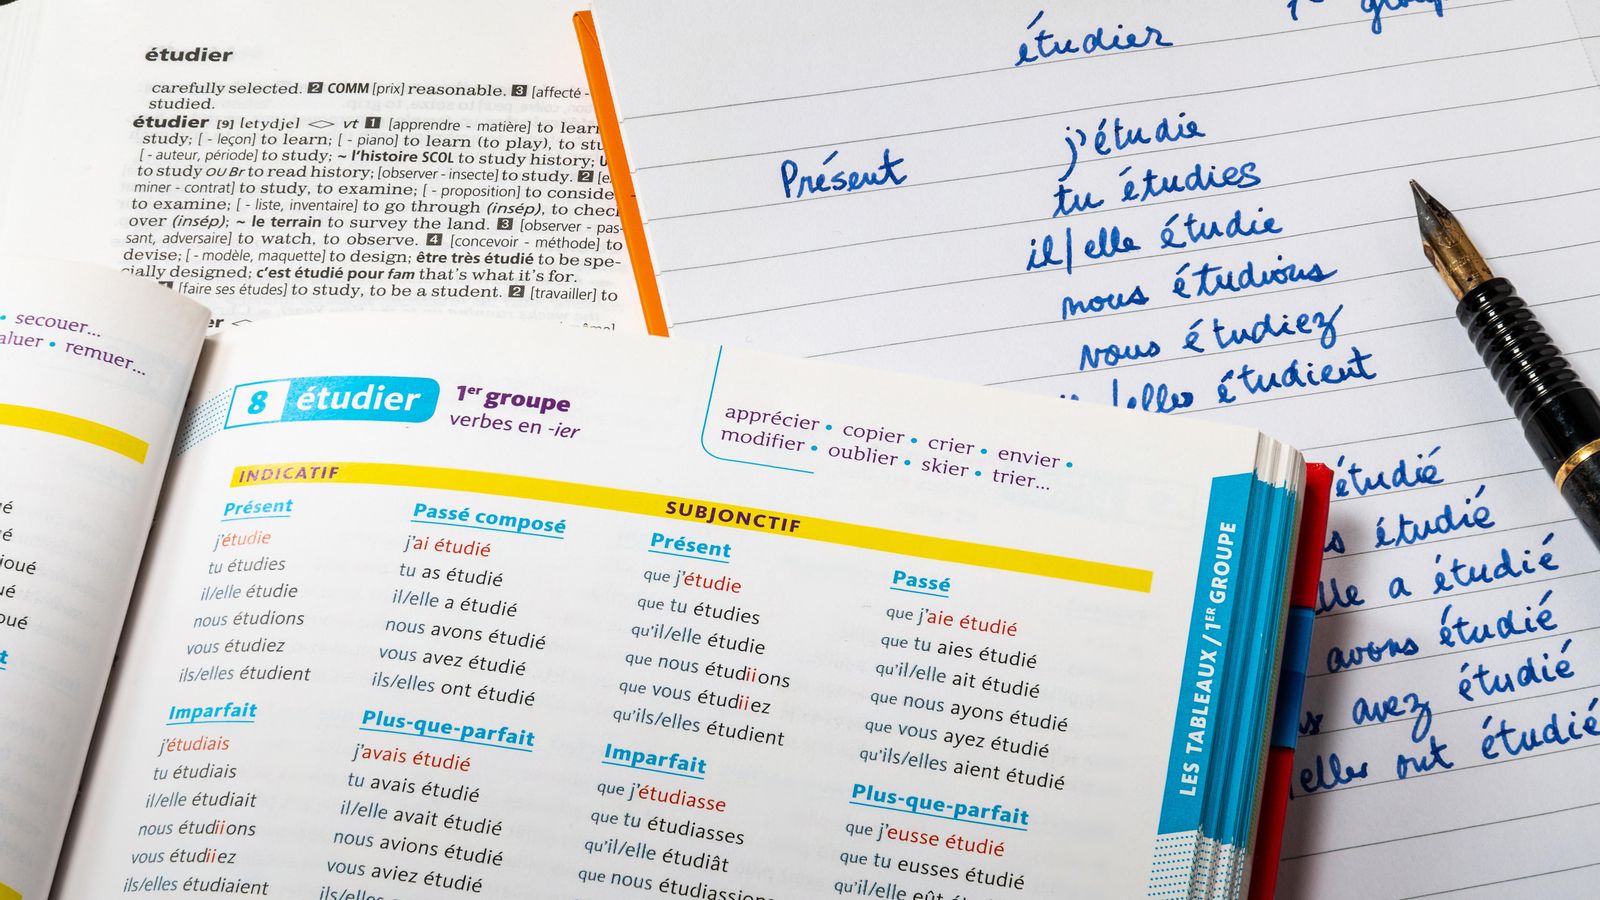 étudier
carefully selected. 2 COMM [prix] reasonable. 3 [affecté -
studied.
étudier [9] [etydje] <> vt 1 [apprendre - matière] to learn
study; [- leçon] to learn; [- piano] to learn (to play), to stu
[- auteur, période] to study; ~ l'histoire SCOL to study history; U
to study OU Br to read history; [observer - insecte] to study. 2 [e
miner - contrat] to study, to examine; [- proposition] to conside
to examine; [- liste, inventaire] to go through (insép), to chec
over (insép); ~ le terrain to survey the land. 3 [observer - pas-
sant, adversaire] to watch, to observe. 4 [concevoir - méthode] to
devise; [- modèle, maquette] to design; être très étudié to be spe-
cially designed; c'est étudié pour fam that's what it's for.
[faire ses études] to study, to be a student. 2 [travailler] to
étudier
Présent
j'étudie
tu étudies
il/elle étudie
nous étudions
vous étudiez
/elles étudient
étudié
s étudié
lle a étudié
avons étudié
s avez étudié
elles ont étudié
• secouer...
aluer • remuer...
joué
8 étudier
1er groupe
verbes en -ier
apprécier • copier • crier • envier •
modifier • oublier • skier • trier...
INDICATIF
Présent
j'étudie
tu étudies
il/elle étudie
nous étudions
vous étudiez
ils/elles étudient
Passé composé
j'ai étudié
tu as étudié
il/elle a étudié
nous avons étudié
vous avez étudié
ils/elles ont étudié
Imparfait
j'étudiais
tu étudiais
il/elle étudiait
nous étudiions
vous étudiiez
ils/elles étudiaient
Plus-que-parfait
j'avais étudié
tu avais étudié
il/elle avait étudié
nous avions étudié
vous aviez étudié
ils/elles
SUBJONCTIF
Présent
que j'étudie
que tu étudies
qu'il/elle étudie
que nous étudiions
que vous étudiiez
qu'ils/elles étudient
Passé
que j'aie étudié
que tu aies étudié
qu'il/elle ait étudié
que nous ayons étudié
que vous ayez étudié
qu'ils/elles aient étudié
Imparfait
que j'étudiasse
que tu étudiasses
qu'il/elle étudiât
que nous étudiassion
Plus-que-parfait
que j'eusse étudié
que tu eusses étudié
qu'il/elle eût
LES TABLEAUX / 1ER GROUPE